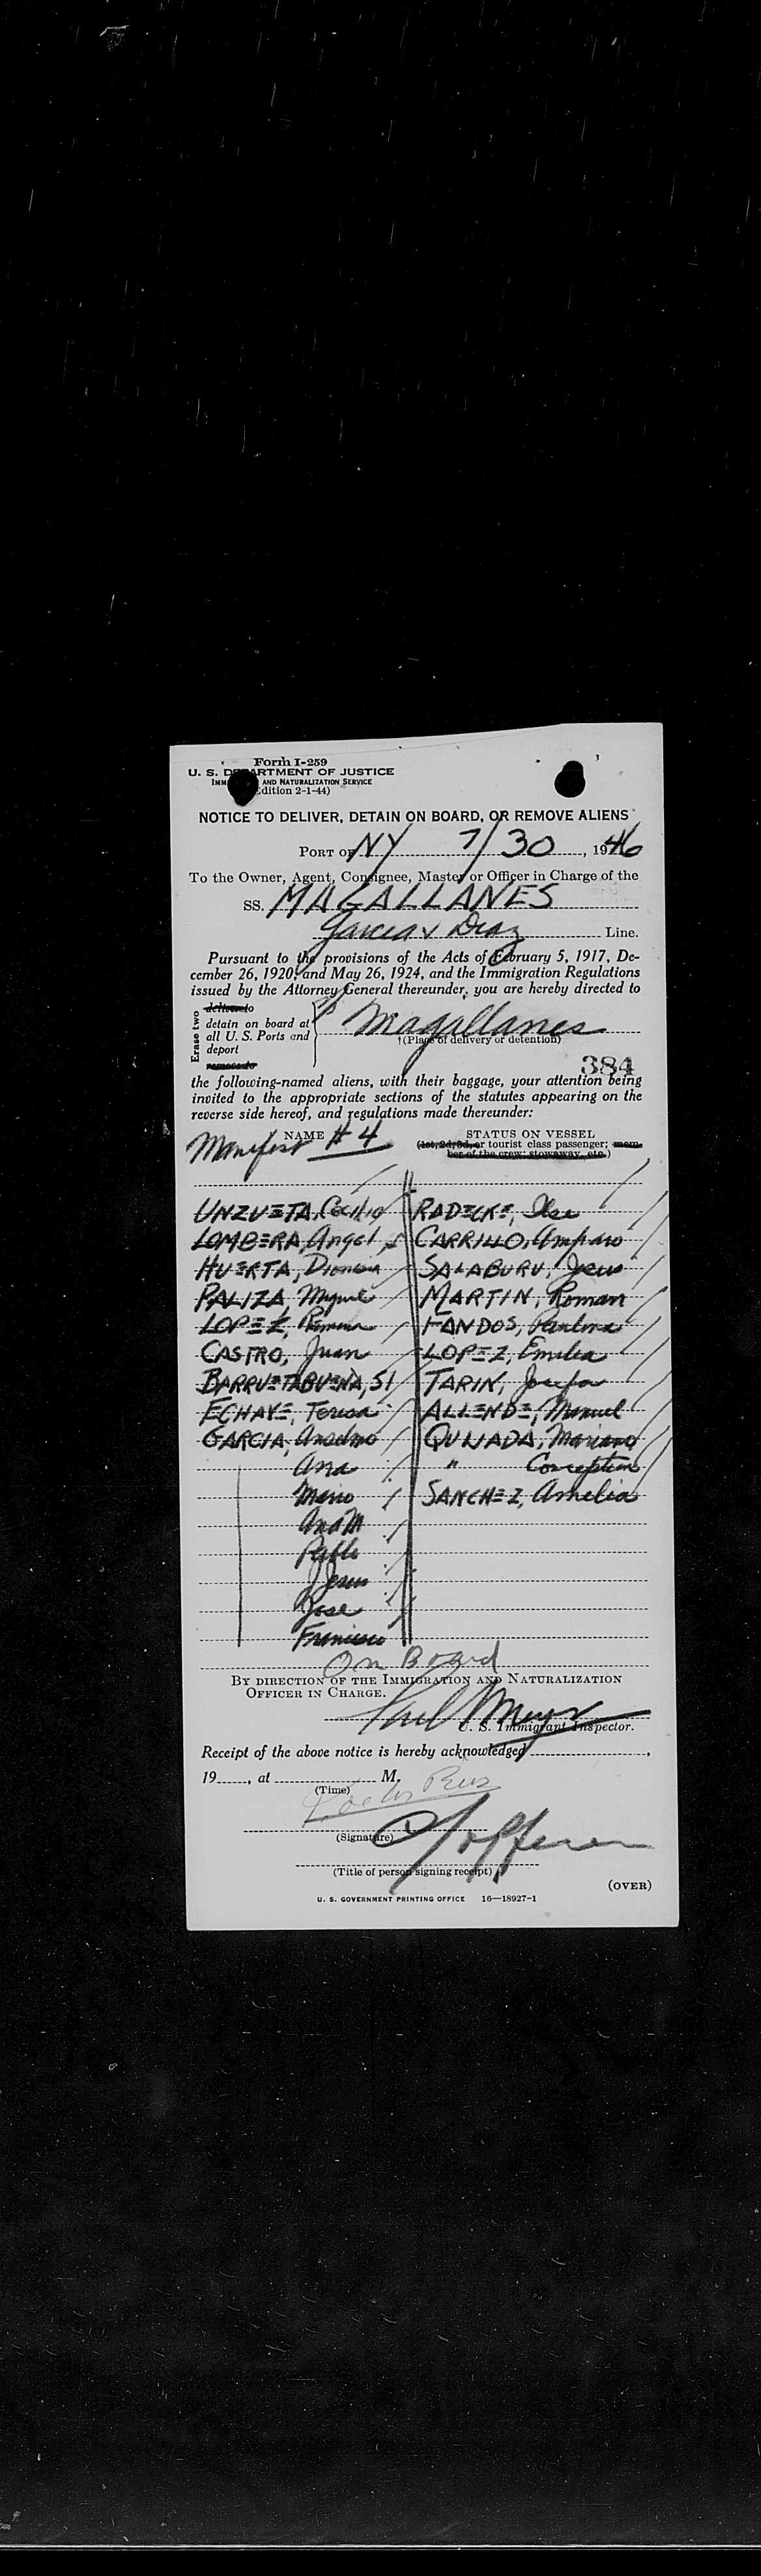 Form I-259
U. S. DEPARTMENT OF JUSTICE
IMMIGRATION AND NATURALIZATION SERVICE
(Edition 2-1-44)
NOTICE TO DELIVER, DETAIN ON BOARD, OR REMOVE ALIENS
PORT OF NY 7/30, 1946
To the Owner, Agent, Consignee, Master or Officer in Charge of the
SS. MAGALLANES
Garcia & Diaz Line.
Pursuant to the provisions of the Acts of February 5, 1917, De-
cember 26, 1920, and May 26, 1924, and the Immigration Regulations
issued by the Attorney General thereunder, you are hereby directed to
Erase two
deliver to
detain on board at
all U. S. Ports and
deport
remove to
Magallanes
†(Place of delivery or detention)
384
the following-named aliens, with their baggage, your attention being
invited to the appropriate sections of the statutes appearing on the
reverse side hereof, and regulations made thereunder:
NAME
Manifest # 4
STATUS ON VESSEL
(1st, 2d, 3d, or tourist class passenger; mem-
ber of the crew; stowaway, etc.)
UNZUETA, Cecilio
LOMBERA, Angel
HUERTA, Dionisia
PALIZA, Miguel
LOPEZ,
CASTRO, Juan
BARRUETABUENA, SI
ECHAVE, Teresa
GARCIA, Anselmo
Ana
Mario
Ana M
Pablo
Jesus
Jose
Francisco
RADECKE, Ilse
CARRILLO, Amparo
SALABURU, Jesus
MARTIN, Roman
FANDOS, Paulina
LOPEZ, Emilia
TARIN, Josefa
ALLENDE, Manuel
QUIJADA, Mariano
" Conception
SANCHEZ, Amelia
On Board
BY DIRECTION OF THE IMMIGRATION AND NATURALIZATION
OFFICER IN CHARGE.
Paul Meyer
U. S. Immigrant Inspector.
Receipt of the above notice is hereby acknowledged,
19, at M.
(Time)
(Signature)
(Title of person signing receipt)
(OVER)
U. S. GOVERNMENT PRINTING OFFICE 16—18927-1